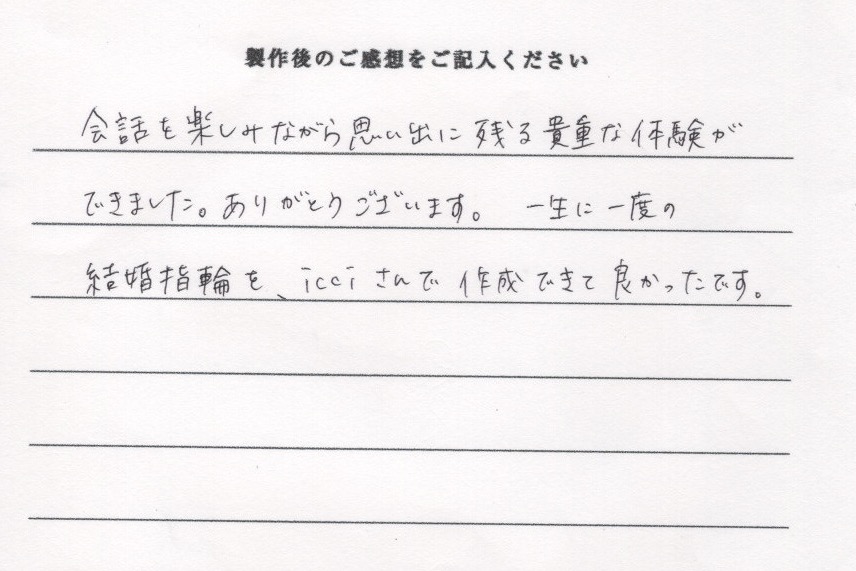 製作後のご感想をご記入ください
会話を楽しみながら思い出に残る貴重な体験が
できました。ありがとうございます。 一生に一度の
結婚指輪を、icciさんで作成できて良かったです。